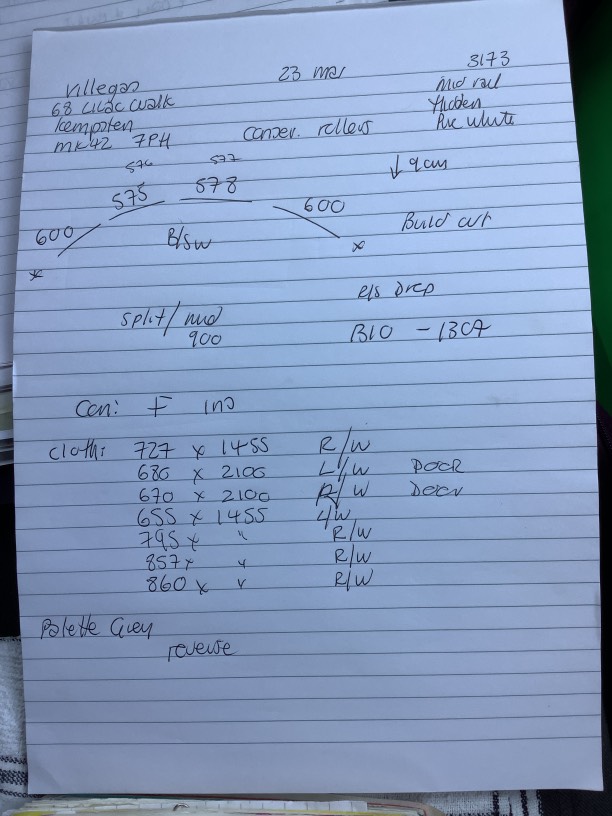 23 mar
3173
Villegas
68 Lilac Walk
Kempston
MK42 7PH
Conser. rollers
Mid rail
Hidden
Pure White
574
577
575
578
↓ 9cm
600
600
B/SW
Build out
x
x
split/mid
900
E/S Drop
B10 - 1307
Con: F IND
Cloth: 727 x 1455 R/W
680 x 2100 L/W DOOR
670 x 2100 R/W DOOR
655 x 1455 L/W
795 x " R/W
857 x " R/W
860 x " R/W
Palette Grey
reverse